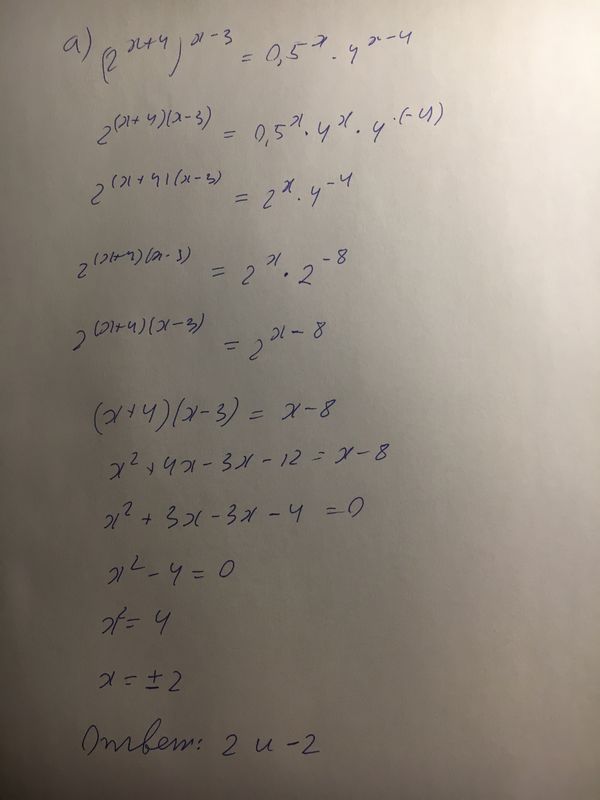 а) (2^{x+4})^{x-3} = 0,5^x · 4^{x-4}
2^{(x+4)(x-3)} = 0,5^x · 4^x · 4^{·(-4)}
2^{(x+4)(x-3)} = 2^x · 4^{-4}
2^{(x+4)(x-3)} = 2^x · 2^{-8}
2^{(x+4)(x-3)} = 2^{x-8}
(x+4)(x-3) = x-8
x² + 4x - 3x - 12 = x - 8
x² + 3x - 3x - 4 = 0
x² - 4 = 0
x² = 4
x = ±2
Ответ: 2 и -2